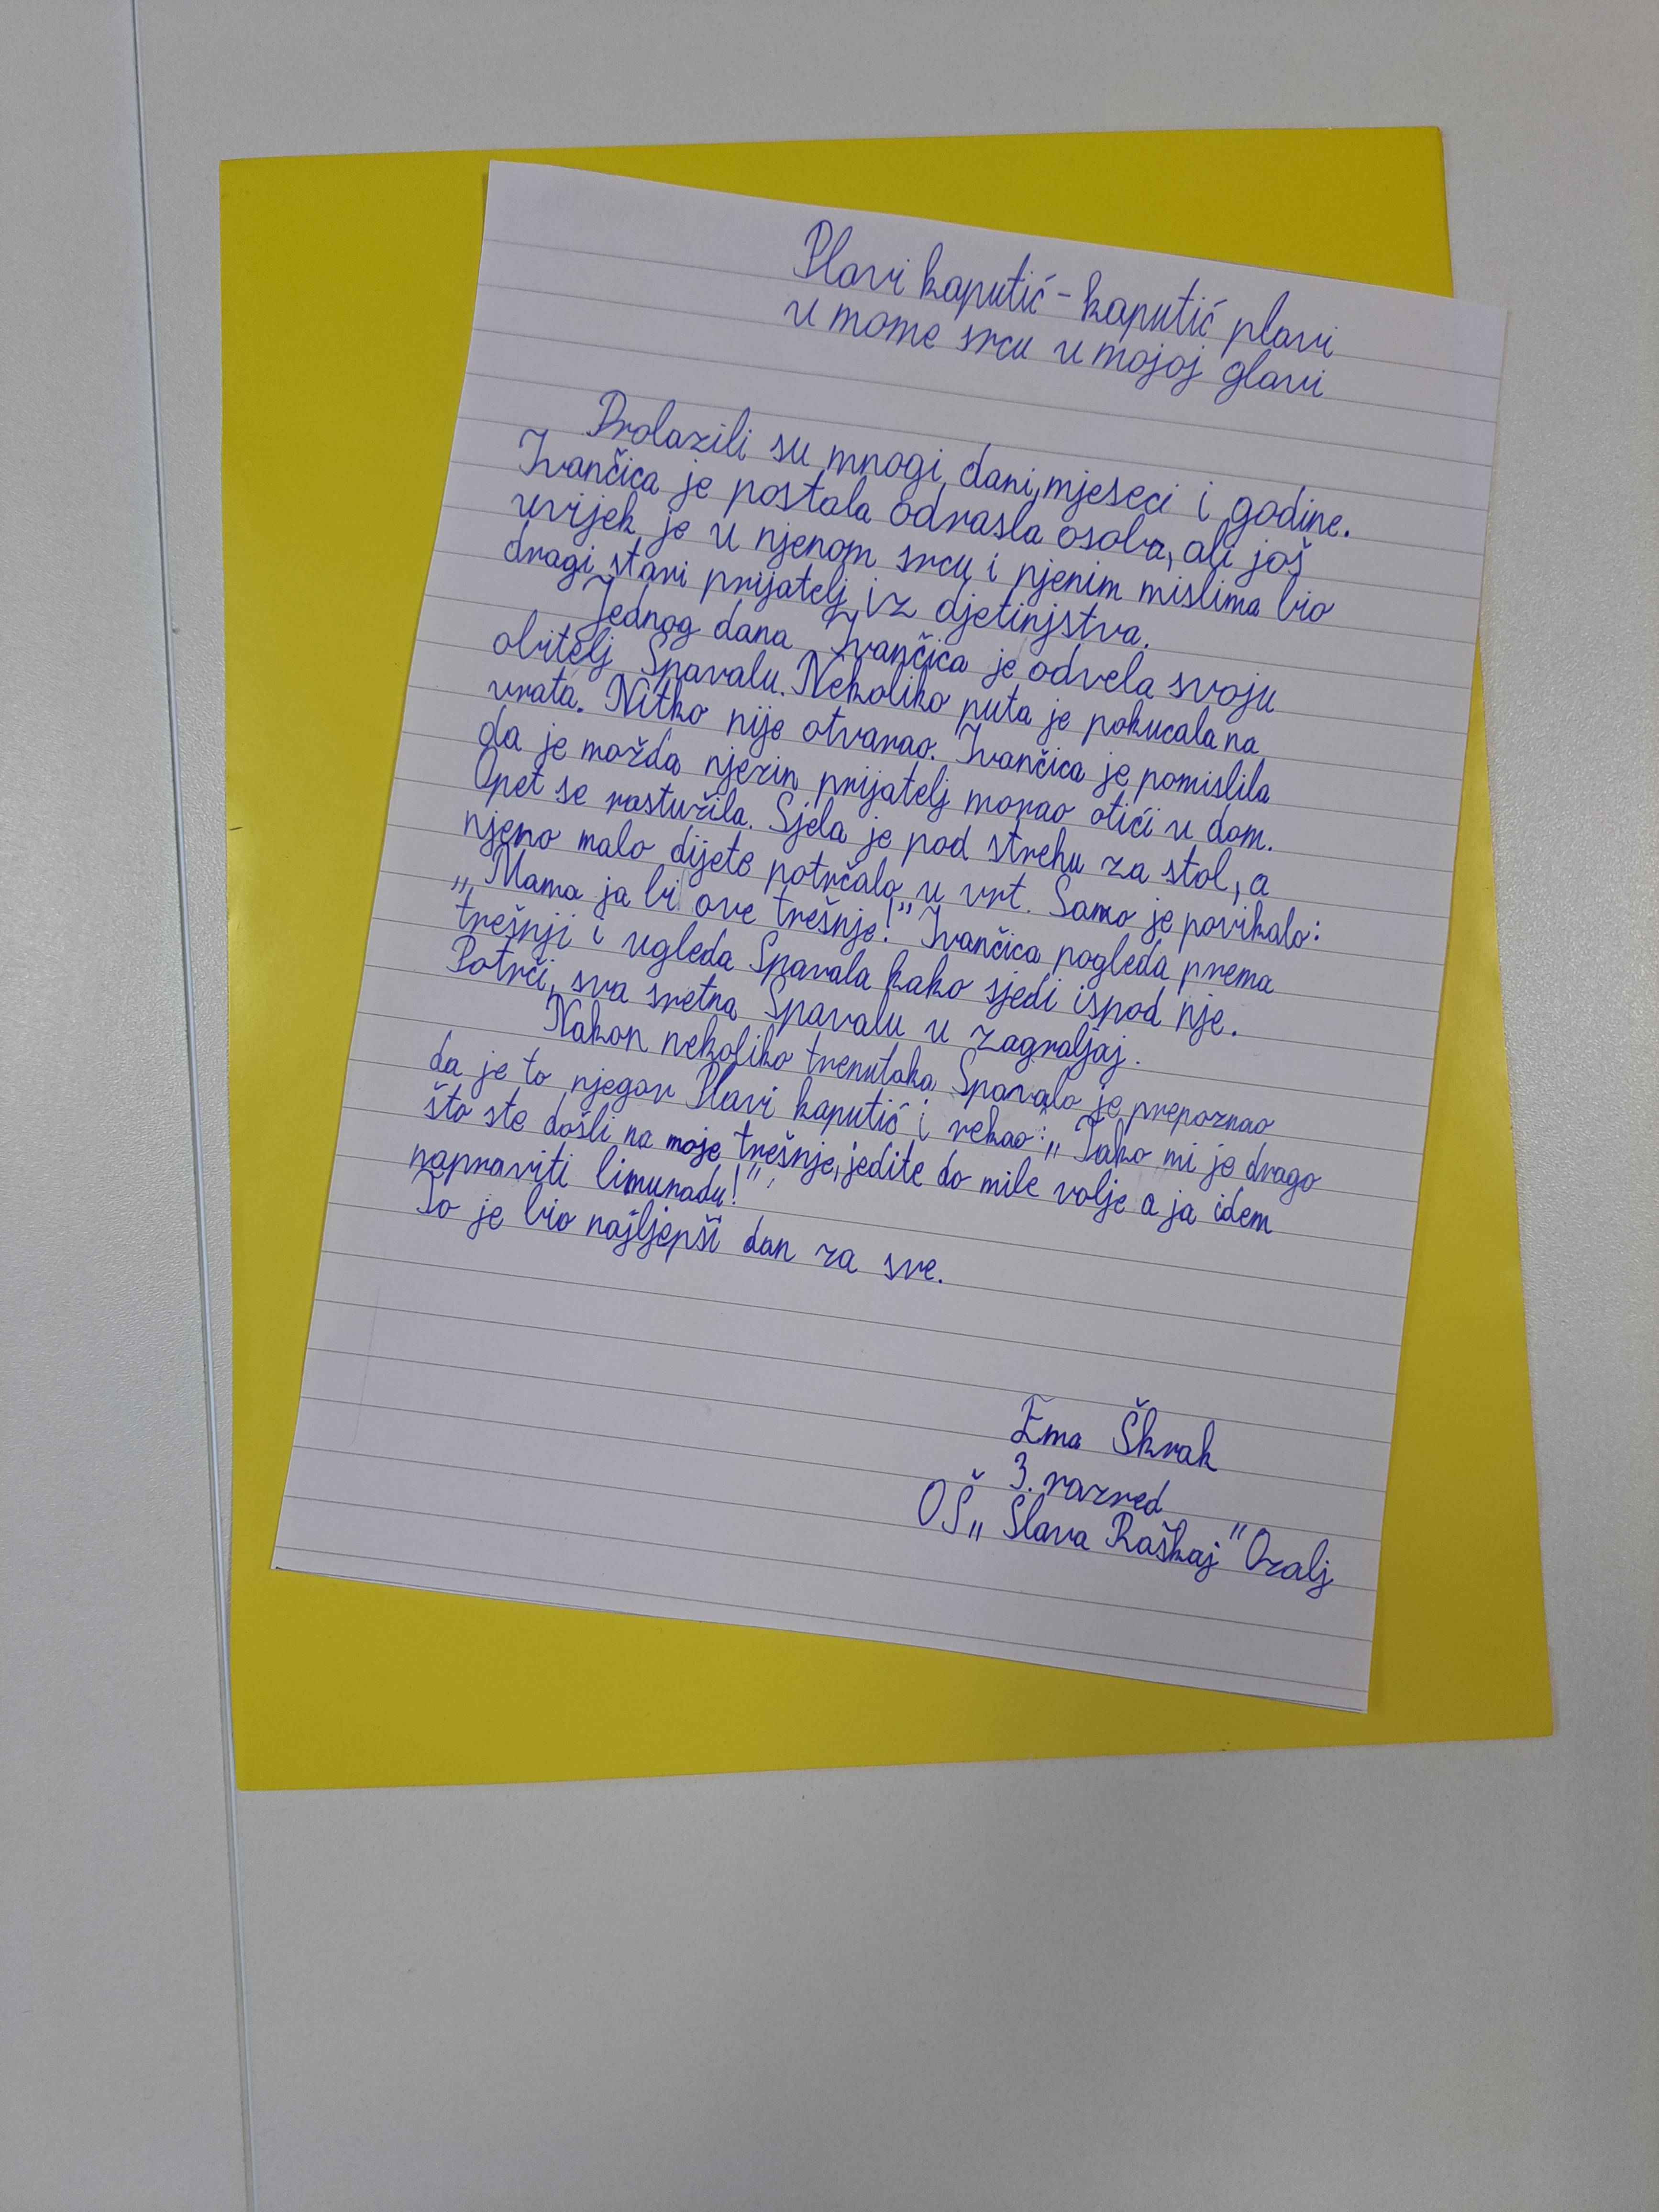 Plavi kaputić - kaputić plavi
u mome srcu u mojoj glavi
Prolazili su mnogi dani, mjeseci i godine.
Ivančica je postala odrasla osoba, ali još
uvijek je u njenom srcu i njenim mislima bio
dragi stari prijatelj iz djetinjstva.
Jednog dana Ivančica je odvela svoju
obitelj Spavalu. Nekoliko puta je pokucala na
vrata. Nitko nije otvarao. Ivančica je pomislila
da je možda njezin prijatelj morao otići u dom.
Opet se rastužila. Sjela je pod strehu za stol, a
njeno malo dijete potrčalo u vrt. Samo je povikalo:
„Mama ja bi ove trešnje!” Ivančica pogleda prema
trešnji i ugleda Spavala kako sjedi ispod nje.
Potrči, sva sretna Spavalu u zagraljaj.
Nakon nekoliko trenutaka Spavalo je prepoznao
da je to njegov Plavi kaputić i rekao: „Tako mi je drago
što ste došli na moje trešnje, jedite do mile volje a ja idem
napraviti limunadu!”
To je bio najljepši dan za sve.
Ema Škrak
3. razred
OŠ „Slava Raškaj” Ozalj